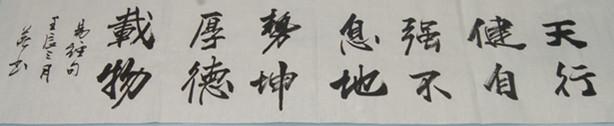 天行
健自
强不
息地
勢坤
厚德
載物
易經句
壬辰三月